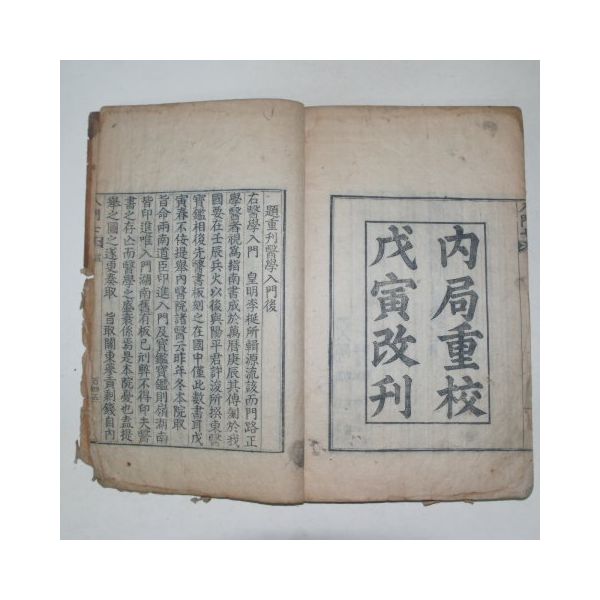 內局重校
戊寅改刊
題重刊醫學入門後
右醫學入門 皇明李梴所輯源流該而門路正
學醫者視爲指南書成於萬曆庚辰其傳刻於我
國要在壬辰兵火以後與陽平君許浚所撰東醫
寶鑑相後先醫書板刻之在國中僅此數書耳戊
寅春不佞提擧內醫院諸醫云昨年冬本院取
旨命兩南道臣印進入門及寶鑑寶鑑則嶺湖南
皆印進唯入門湖南舊有板已刓弊不得印夫醫
書之存亡而醫學之盛衰係焉是本院憂也盍提
擧之圖之遂更奏取 旨取關東蔘貢剩錢自內